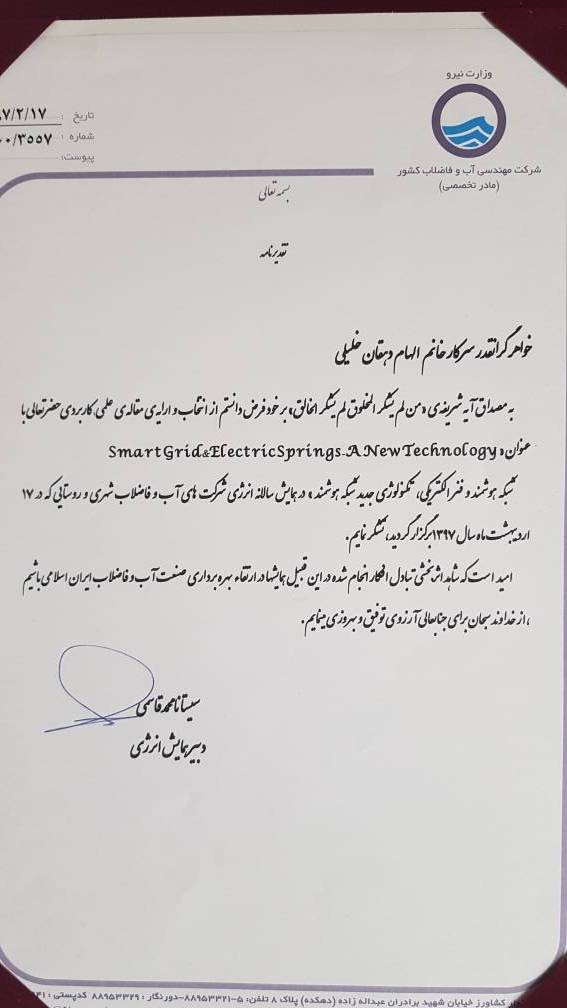 وزارت نیرو
شرکت مهندسی آب و فاضلاب کشور
(مادر تخصصی)
تاریخ : ۷/۲/۱۷
شماره : ۰۰/۳۵۵۷
پیوست:
بسمه تعالی
تقدیرنامه
خواهر گرانقدر سرکار خانم الهام دهقان خلیلی
به مصداق آیه شریفه‌ی «من لم یشکر المخلوق لم یشکر الخالق» بر خود فرض دانستم از انتخاب و ارایه‌ی مقاله‌ی علمی کاربردی حضرتعالی با
عنوان « Smart Grid & Electric Springs - A New Technology
شبکه هوشمند و فنر الکتریکی، تکنولوژی جدید شبکه هوشمند » در همایش سالانه انرژی شرکت های آب و فاضلاب شهری و روستایی که در ۱۷
اردیبهشت ماه سال ۱۳۹۷ برگزار گردید، تشکر نمایم.
امید است که شاهد اثربخشی تبادل افکار انجام شده در این قبیل همایشها در ارتقاء بهره برداری صنعت آب و فاضلاب ایران اسلامی باشیم
، از خداوند سبحان برای جنابعالی آرزوی توفیق و بهروزی مینمایم.
محمد قاسمی
دبیر همایش انرژی
کشاورز خیابان شهید برادران عبداله زاده (دهکده) پلاک ۸ تلفن: ۵-۸۸۹۵۳۳۲۱-دورنگار : ۸۸۹۵۳۳۲۹ کدپستی :